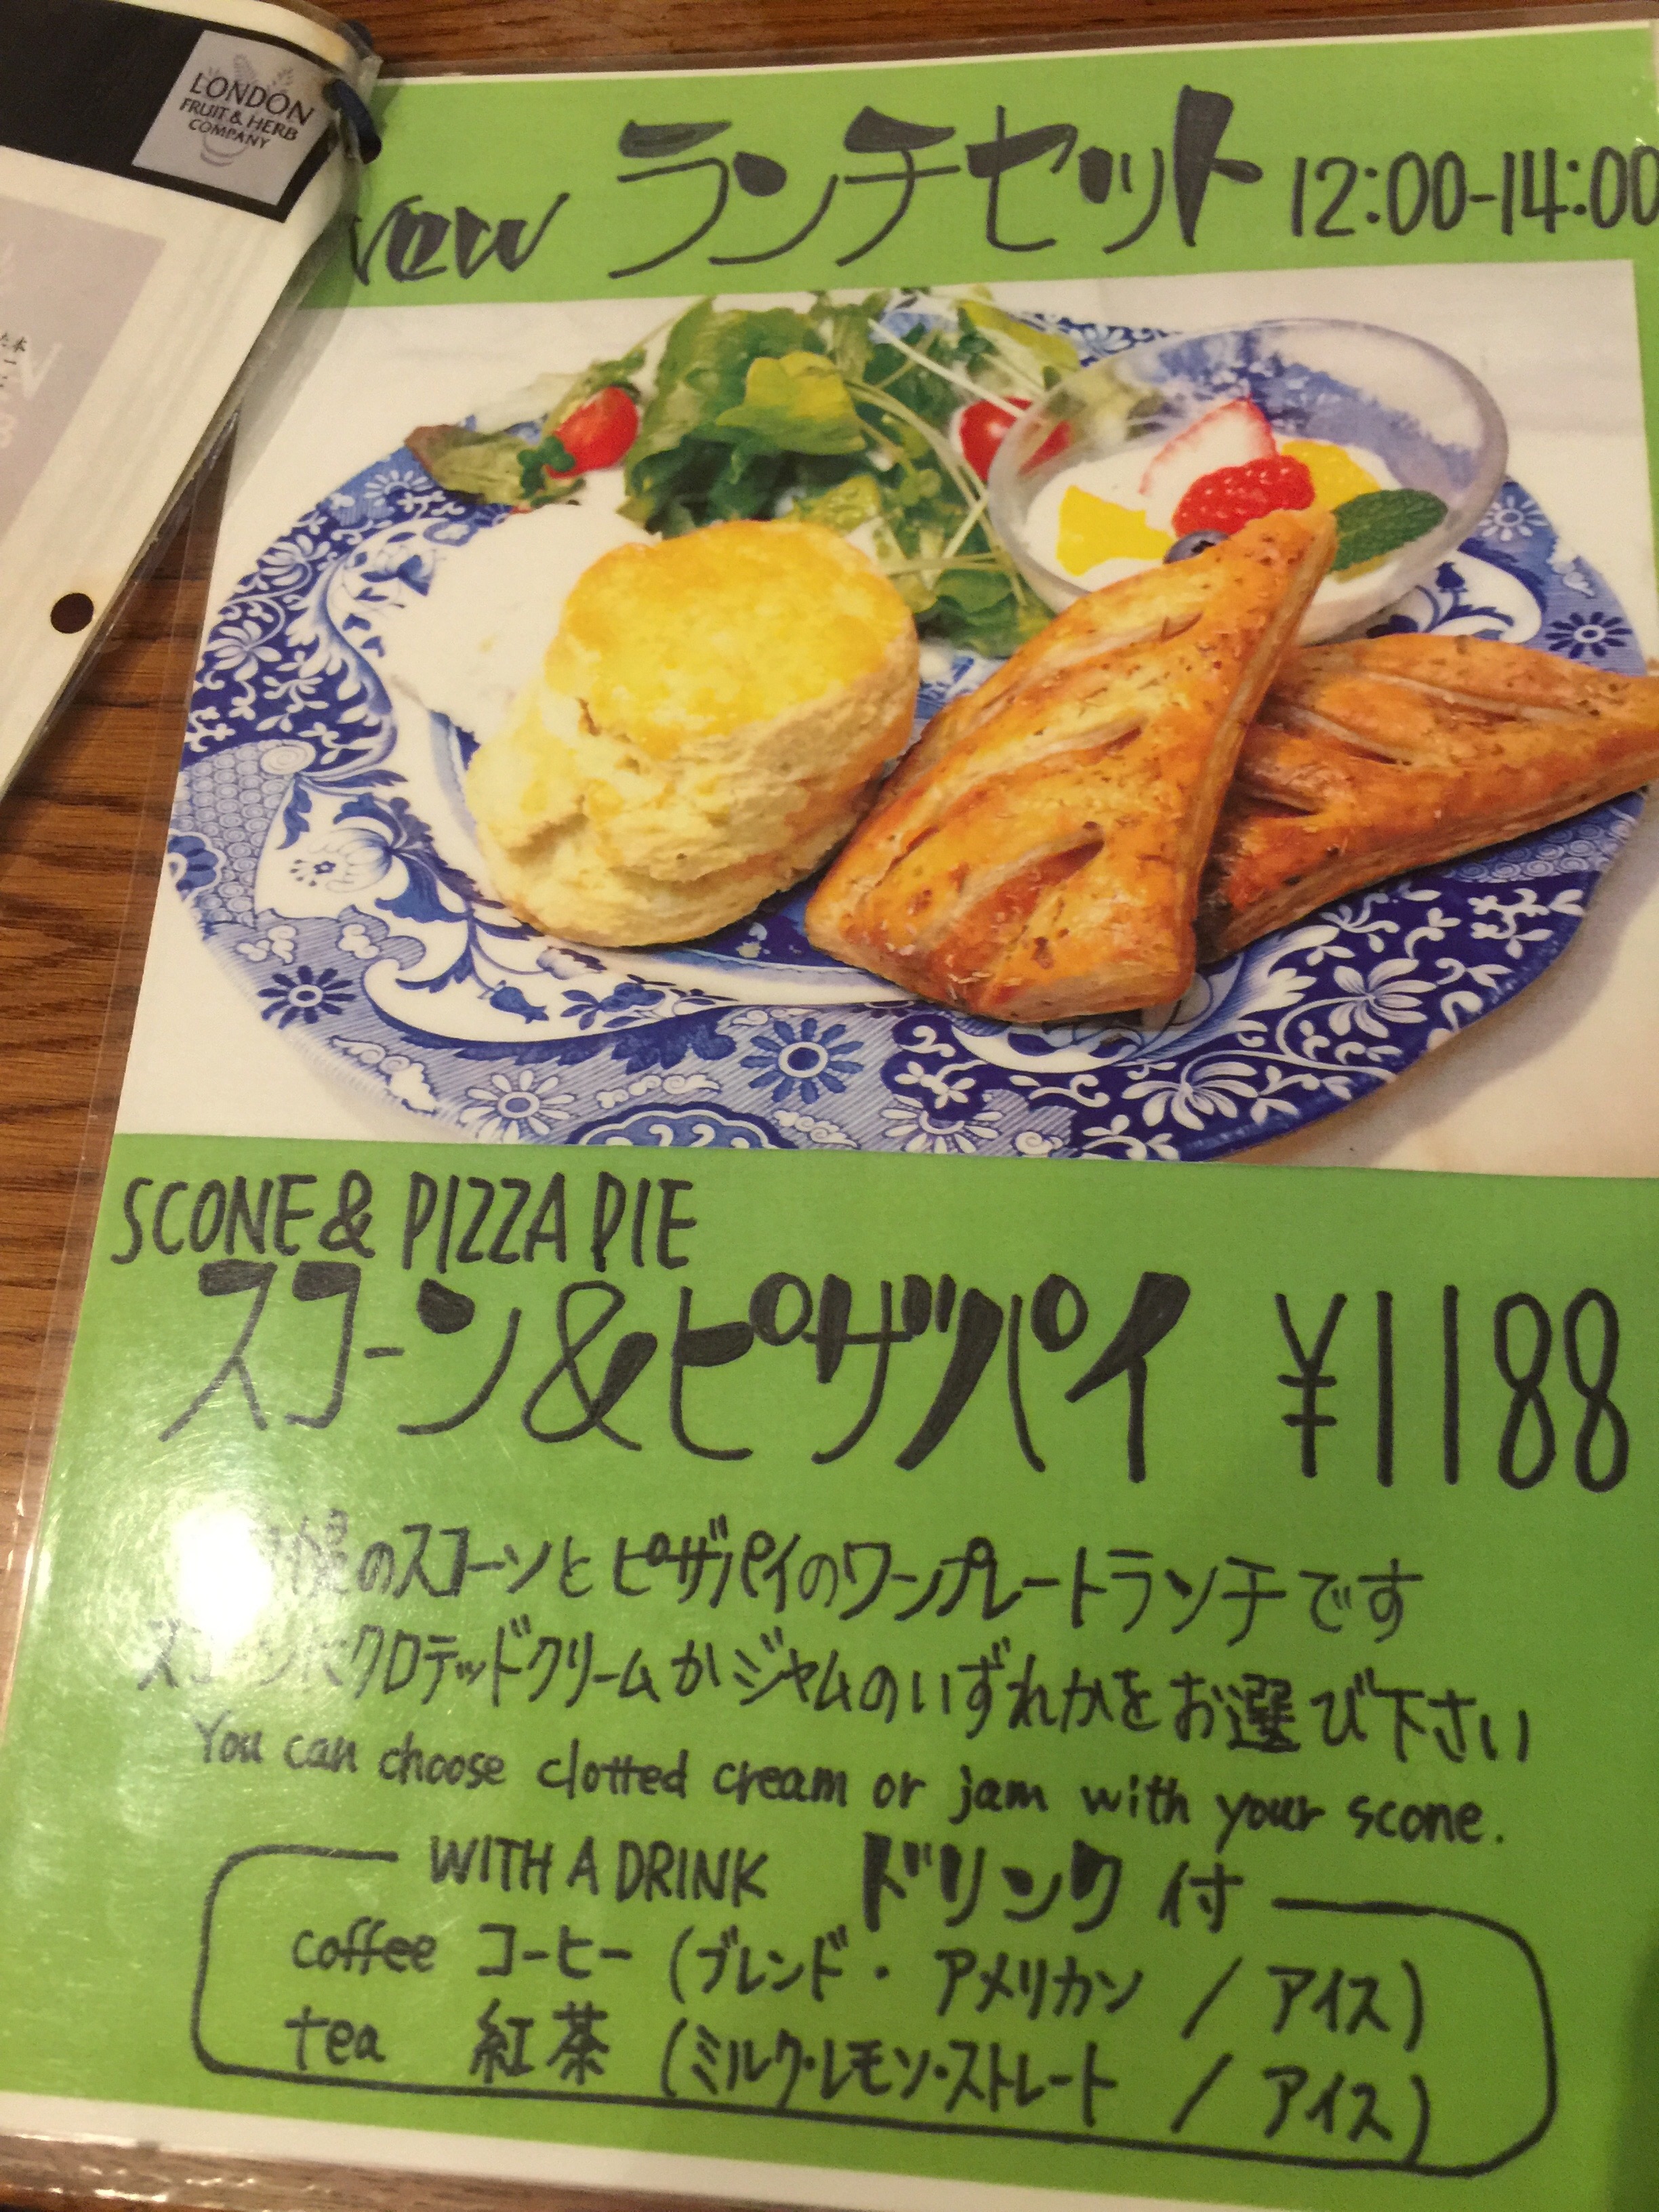 LONDON
FRUIT & HERB
COMPANY
New ランチセット 12:00-14:00
SCONE & PIZZA PIE
スコーン&ピザパイ ¥1188
のスコーンとピザパイのワンプレートランチです
スコーンにクロテッドクリームかジャムのいずれかをお選び下さい
You can choose clotted cream or jam with your scone.
WITH A DRINK ドリンク付
coffee コーヒー (ブレンド・アメリカン / アイス)
tea 紅茶 (ミルク・レモン・ストレート / アイス)